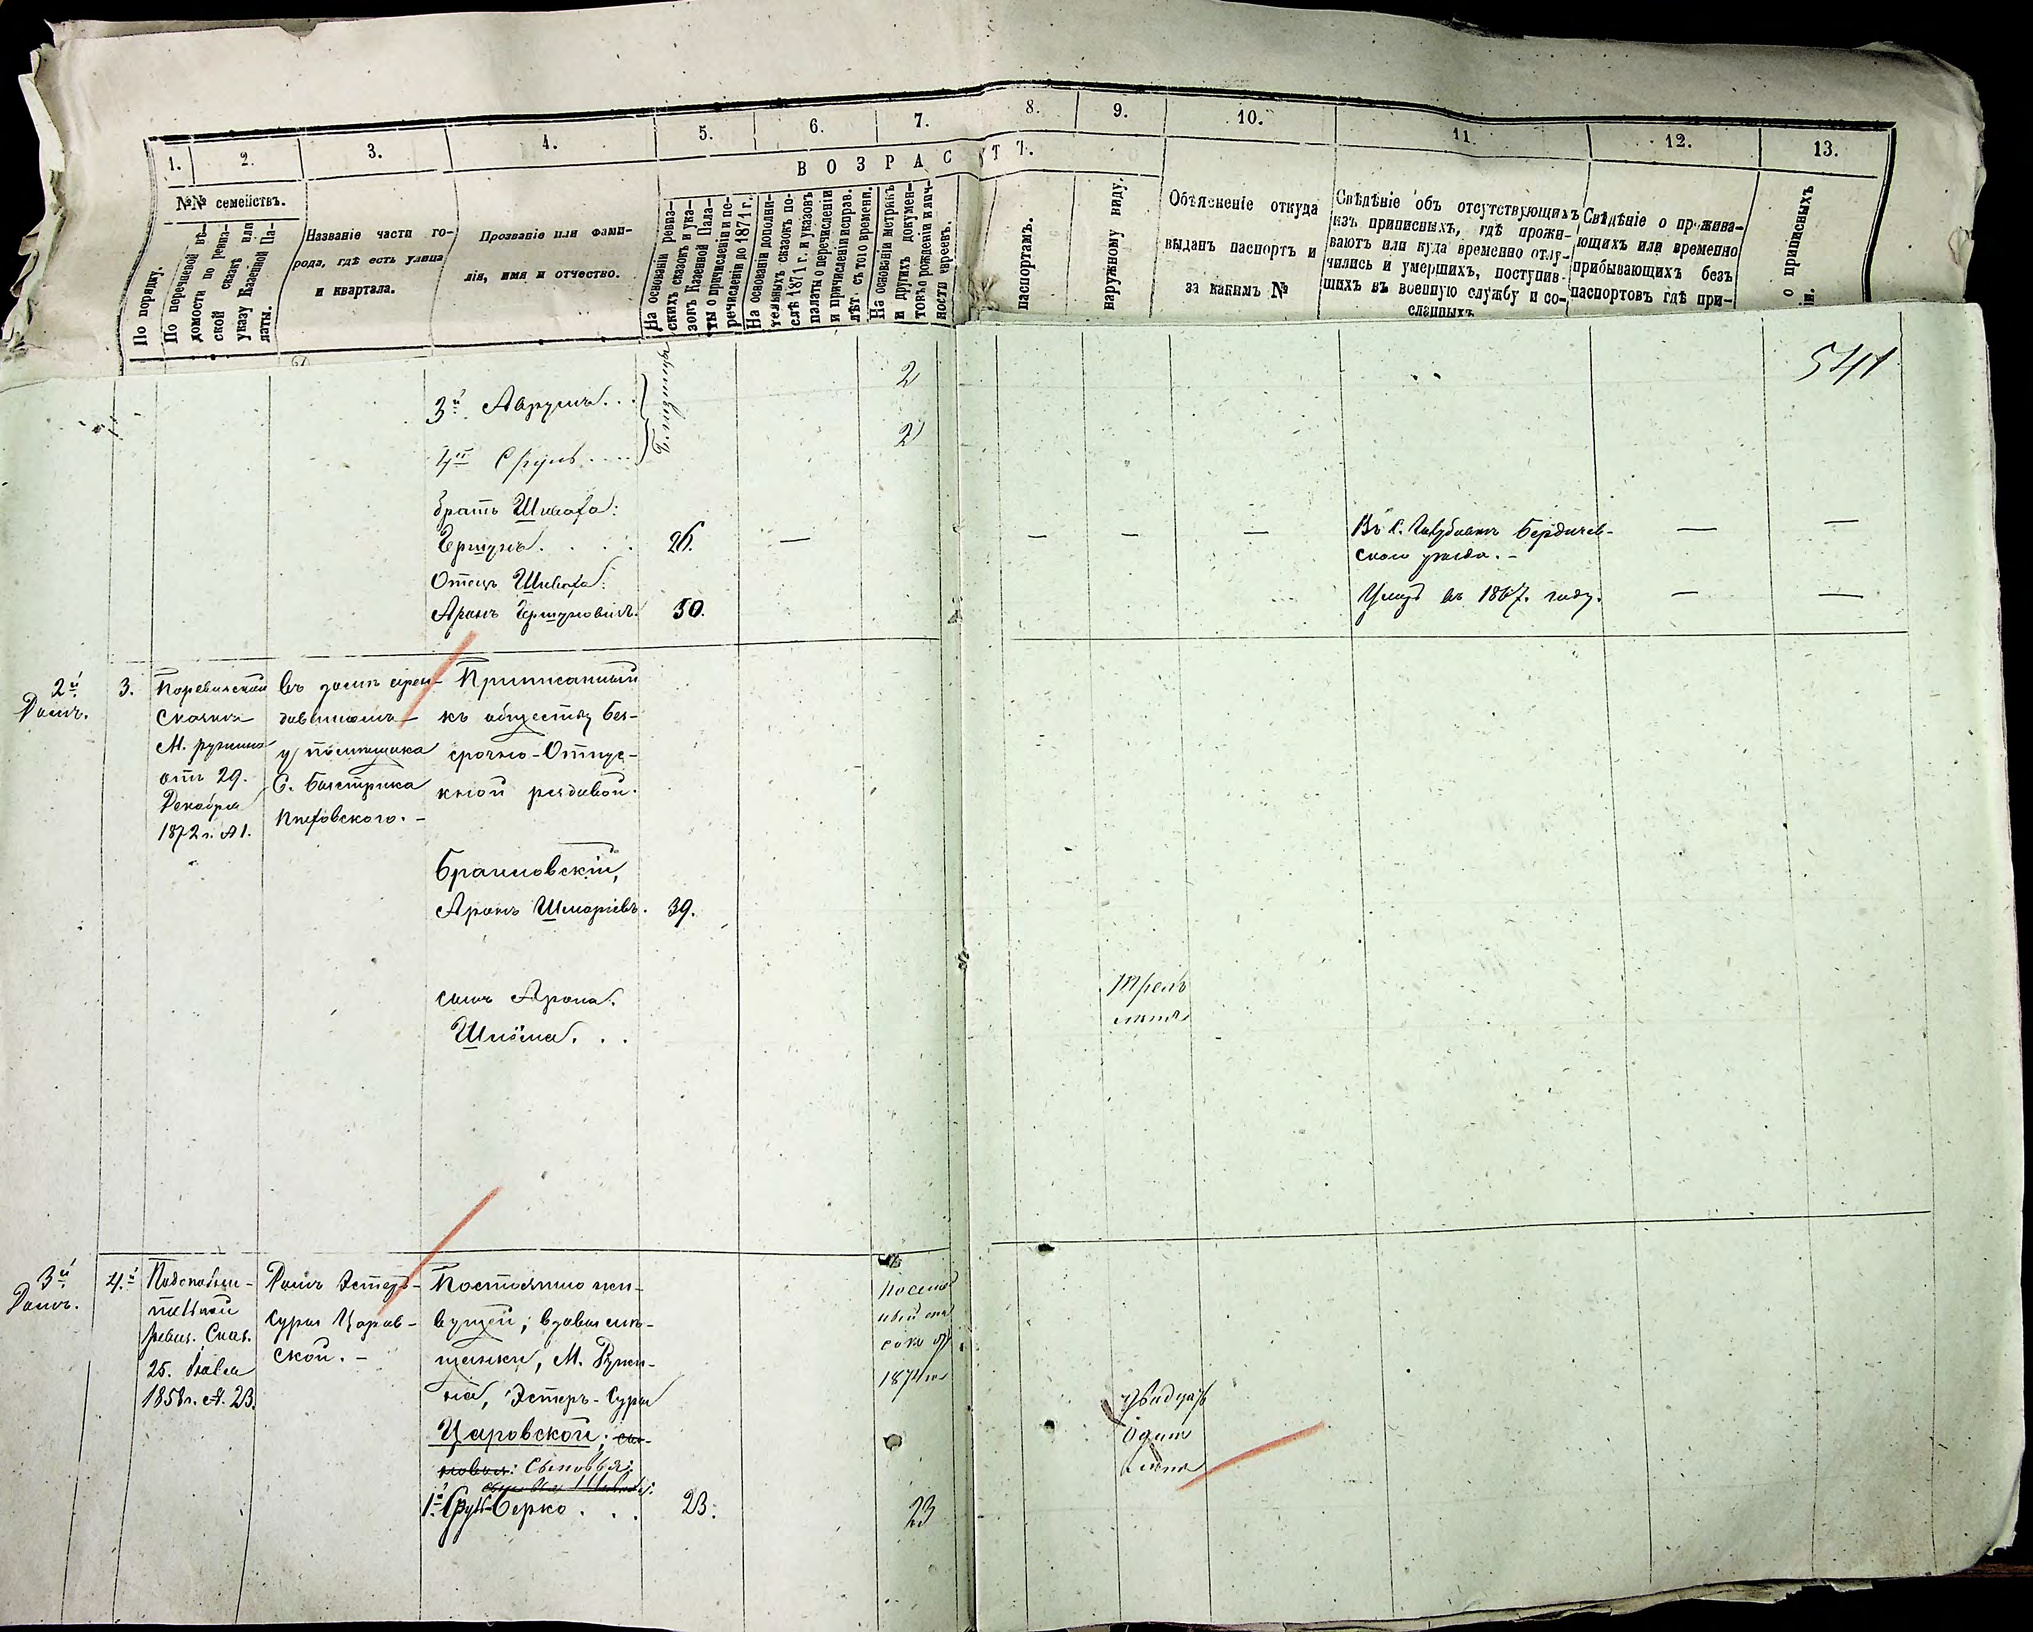 1.
2.
3.
4.
5.
6.
7.
8.
9.
10.
11.
12.
13.
В О З Р А С Т Ъ.
№№ семействъ.
По порядку.
По перечневой вѣ-
домости по ревиз-
ской сказкѣ или
указу Казенной Па-
латы.
Названіе части го-
рода, гдѣ есть улица
и квартала.
Прозваніе или фами-
лія, имя и отчество.
На основаніи ревиз-
скихъ сказокъ и ука-
зовъ Казенной Пала-
ты о причисленіи и пе-
речисленіи до 1871 г.
На основаніи дополни-
тельныхъ сказокъ по-
слѣ 1871 г. и указовъ
палаты о перечисленіи
и причисленіи исправ.
лѣт. съ того времени.
На основаніи метрикъ
и другихъ докумен-
товъ о рожденіи и лич-
ности евреевъ.
паспортамъ.
наружному виду.
Объясненіе откуда
выданъ паспортъ и
за какимъ №
Свѣдѣніе объ отсутствующихъ
изъ приписныхъ, гдѣ прожи-
ваютъ или куда временно отлу-
чились и умершихъ, поступив-
шихъ въ военную службу и со-
сланныхъ
Свѣдѣніе о прожива-
ющихъ или временно
прибывающихъ безъ
паспортовъ гдѣ при-
о приписныхъ
541
3й Аврумъ. . .
2
4й Сруль . . . .
2
братъ Шмаіа:
Гершунъ. . . .
26.
—
—
—
—
Въ с. Бердичев-
скаго уѣзда. -
—
—
Отецъ Шмаіа:
Аронъ Гершуновичъ.
50.
Умеръ въ 1867. году.
—
—
2й
Домъ.
3.
Сказка
М. ружина
отъ 29.
Декабря
1872 г. № 1.
въ домѣ арен-
у помѣщика
С. Быстрика
Приписанный
къ обществу без-
срочно-Отпус-
кной рядовой.
Браиловскій,
Аронъ Шмаріевъ.
39.
сынъ Арона.
Шлёма. . .
Трехъ
лѣтъ
3й
Домъ.
4.й
ревиз. Сказ.
25.
1858 г. № 23.
Домъ Эстеръ-
Суры Царов-
ской. -
Постоянно жи-
вущей, вдовы мѣ-
щанки, М. Ружи-
на, Эстеръ-Суры
Царовской; сы-
новья: Сыновья:
1й Сруль-Берко . . .
23.
1874 го
23
двадцать
Одинъ